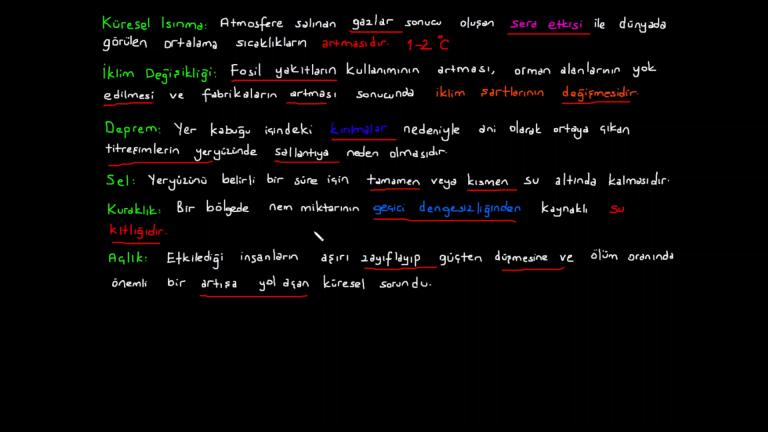 Küresel Isınma: Atmosfere salınan gazlar sonucu oluşan sera etkisi ile dünyada
görülen ortalama sıcaklıkların artmasıdır. 1-2 °C
İklim Değişikliği: Fosil yakıtların kullanımının artması, orman alanlarının yok
edilmesi ve fabrikaların artması sonucunda iklim şartlarının değişmesidir.
Deprem: Yer kabuğu içindeki kırılmalar nedeniyle ani olarak ortaya çıkan
titreşimlerin yeryüzünde sallantıya neden olmasıdır.
Sel: Yeryüzünü belirli bir süre için tamamen veya kısmen su altında kalmasıdır.
Kuraklık: Bir bölgede nem miktarının geçici dengesizliğinden kaynaklı su
kıtlığıdır.
Açlık: Etkilediği insanların aşırı zayıflayıp güçten düşmesine ve ölüm oranında
önemli bir artışa yol açan küresel sorundu.